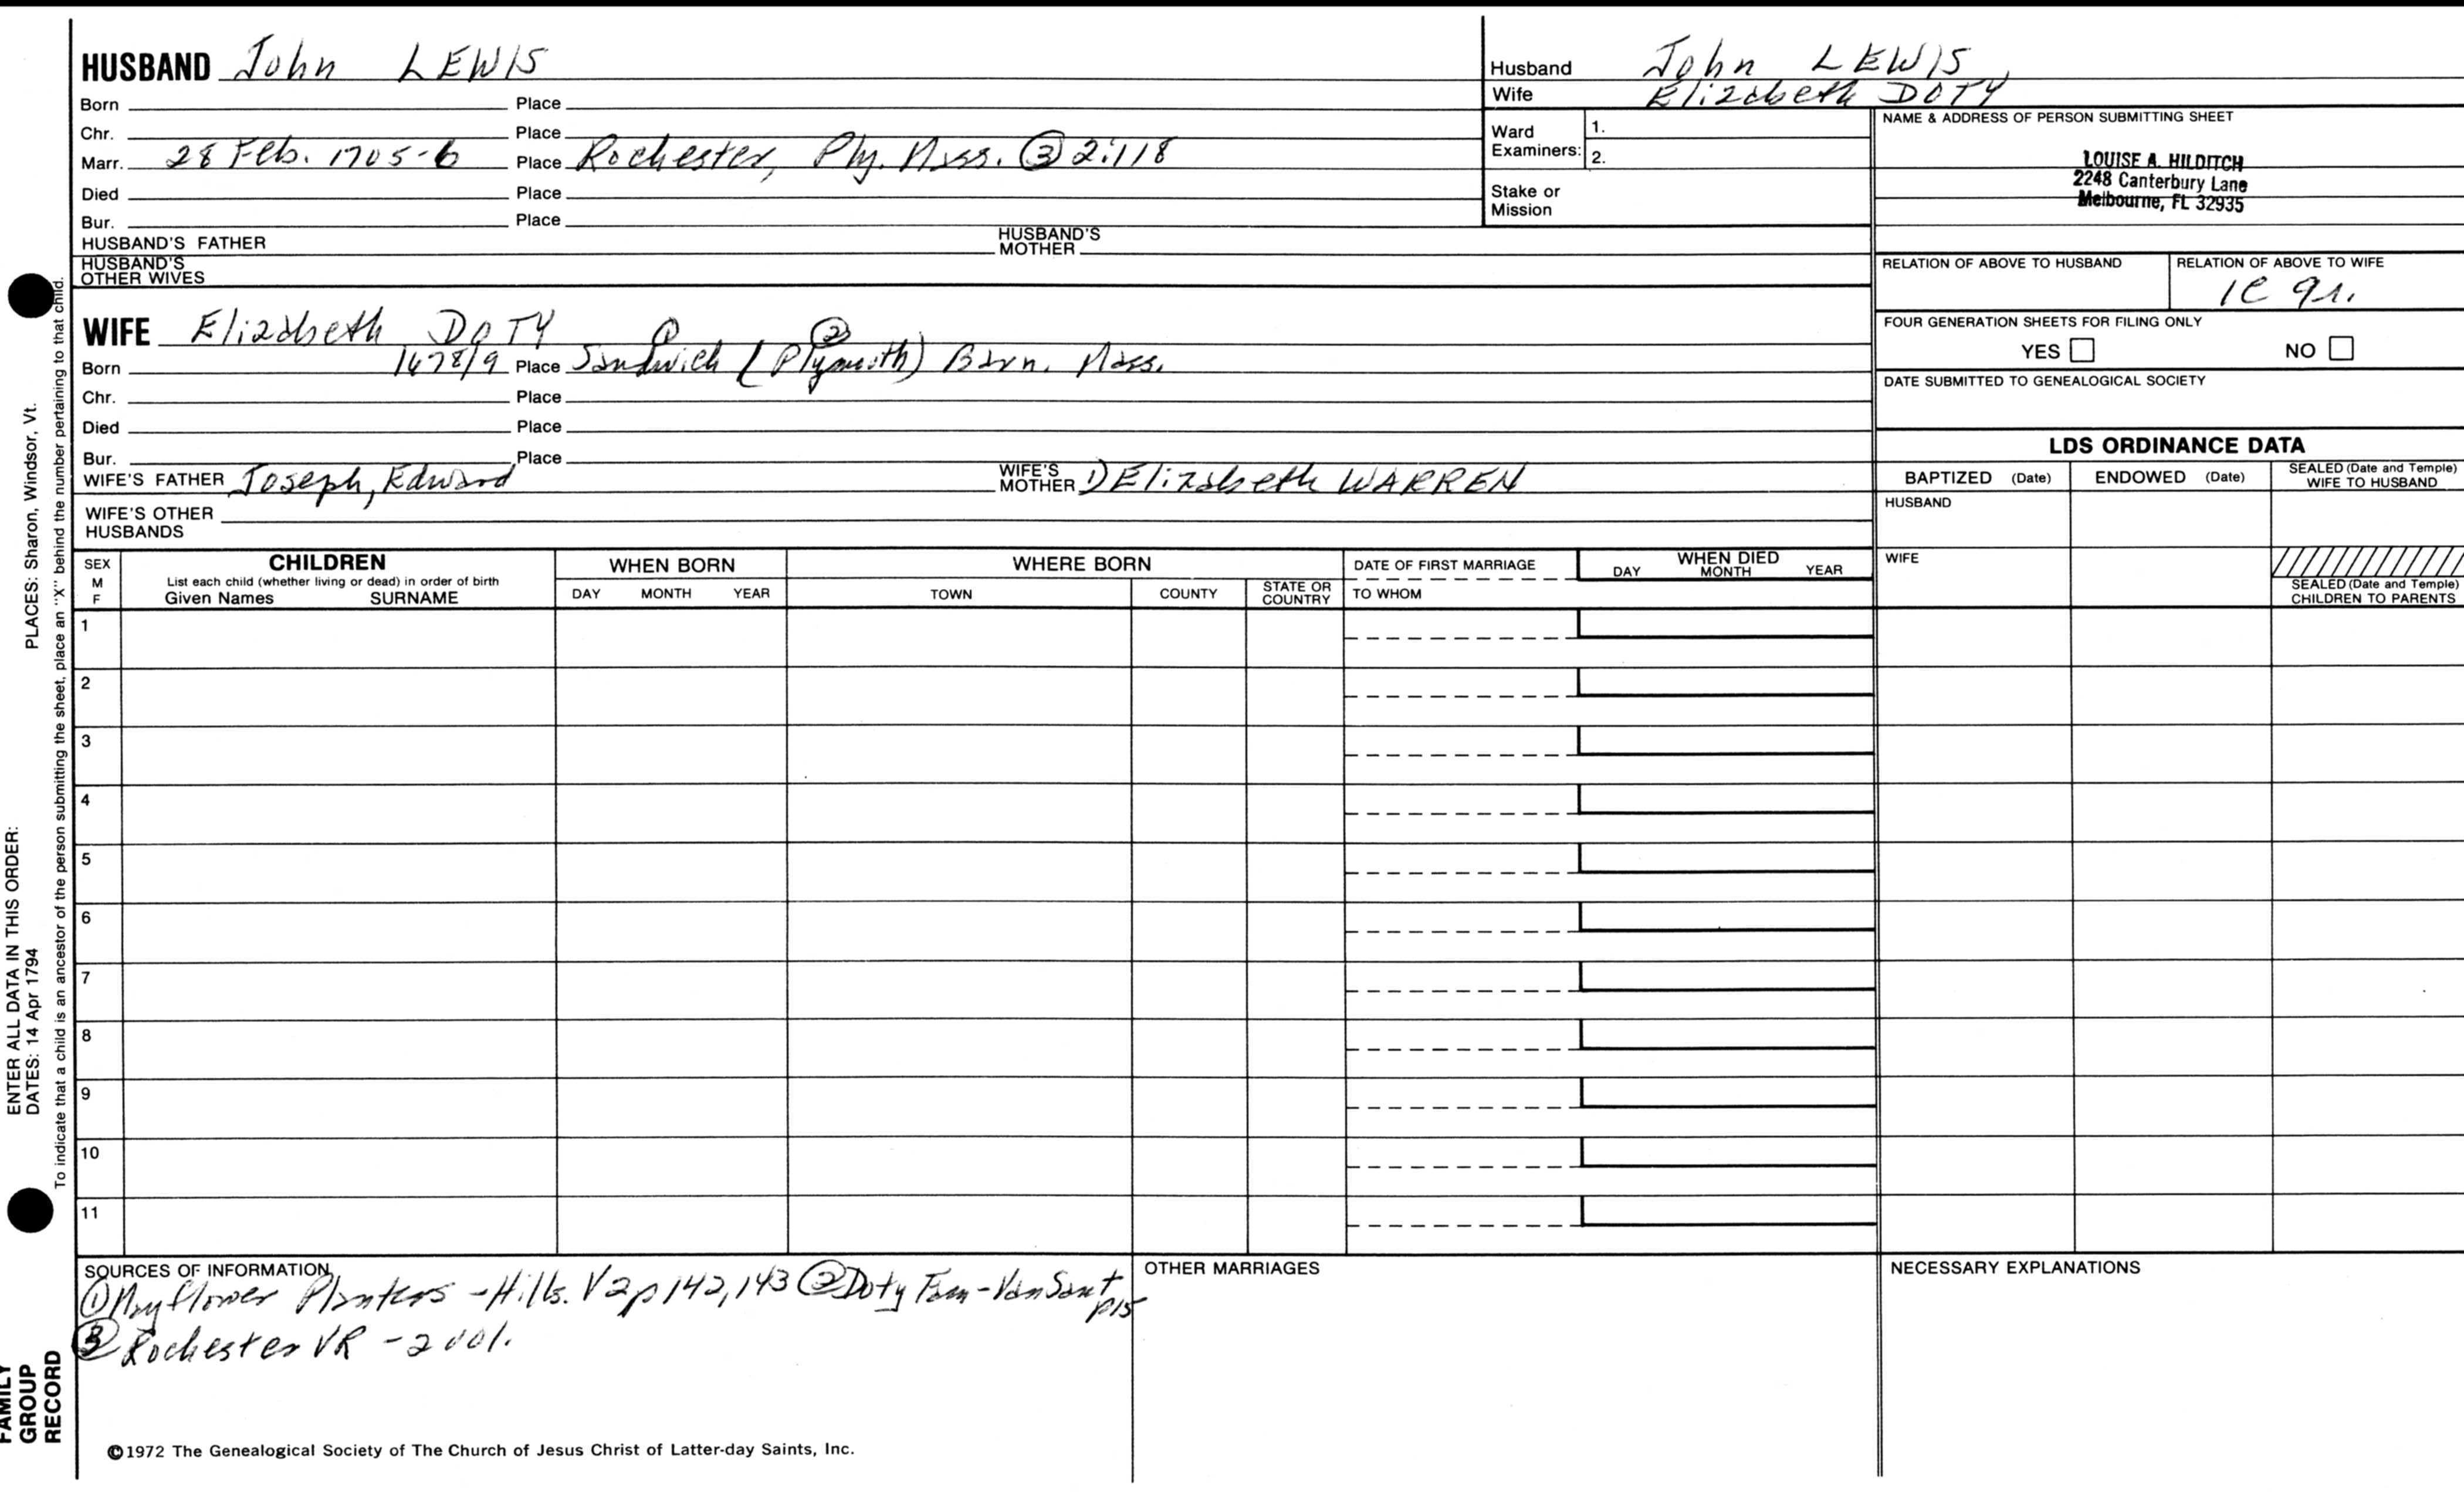 HUSBAND John LEWIS
Born Place
Chr. Place
Marr. 28 Feb. 1705-6 Place Rochester, Ply. Mass. ③ 2:118
Died Place
Bur. Place
HUSBAND'S FATHER HUSBAND'S MOTHER
HUSBAND'S OTHER WIVES
Husband John LEWIS
Wife Elizabeth DOTY
Ward Examiners: 1.
2.
Stake or Mission
NAME & ADDRESS OF PERSON SUBMITTING SHEET
LOUISE A. HILDITCH
2248 Canterbury Lane
Melbourne, FL 32935
RELATION OF ABOVE TO HUSBAND RELATION OF ABOVE TO WIFE
1C 9r.
FOUR GENERATION SHEETS FOR FILING ONLY
YES NO
DATE SUBMITTED TO GENEALOGICAL SOCIETY
WIFE Elizabeth DOTY ① ②
Born 1678/9 Place Sandwich (Plymouth) Barn. Mass.
Chr. Place
Died Place
Bur. Place
WIFE'S FATHER Joseph, Edward WIFE'S MOTHER 1) Elizabeth WARREN
WIFE'S OTHER HUSBANDS
LDS ORDINANCE DATA
BAPTIZED (Date) ENDOWED (Date) SEALED (Date and Temple) WIFE TO HUSBAND
HUSBAND
WIFE
SEALED (Date and Temple) CHILDREN TO PARENTS
SEX M F CHILDREN WHEN BORN WHERE BORN DATE OF FIRST MARRIAGE WHEN DIED
List each child (whether living or dead) in order of birth
Given Names SURNAME DAY MONTH YEAR TOWN COUNTY STATE OR COUNTRY TO WHOM DAY MONTH YEAR
1
2
3
4
5
6
7
8
9
10
11
SOURCES OF INFORMATION
① Mayflower Planters - Hills. V2p142,143 ② Doty Fam - VanSant p15
③ Rochester VR - 2 vol.
OTHER MARRIAGES
NECESSARY EXPLANATIONS
©1972 The Genealogical Society of The Church of Jesus Christ of Latter-day Saints, Inc.
ENTER ALL DATA IN THIS ORDER:
DATES: 14 Apr 1794 PLACES: Sharon, Windsor, Vt.
To indicate that a child is an ancestor of the person submitting the sheet, place an "X" behind the number pertaining to that child.
FAMILY
GROUP
RECORD